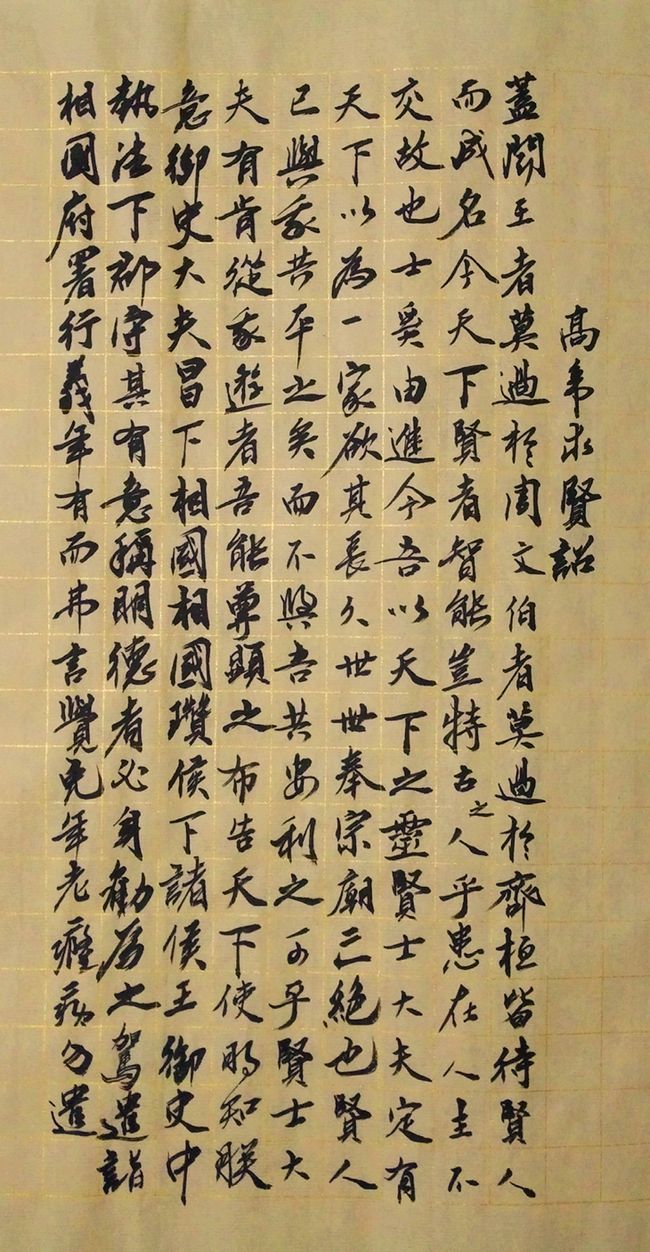 高帝求賢詔
蓋聞王者莫過於周文伯者莫過於齊桓皆待賢人
而成名今天下賢者智能豈特古之人乎患在人主不
交故也士奚由進今吾以天下之靈賢士大夫定有
天下以為一家欲其長久世世奉宗廟亡絕也賢人
已與我共平之矣而不與吾共安利之可乎賢士大
夫有肯從我遊者吾能尊顯之布告天下使明知朕
意御史大夫昌下相國相國瓚侯下諸侯王御史中
執法下郡守其有意稱明德者必身勸為之駕遣詣
相國府署行義年有而弗言覺免年老癃病勿遣